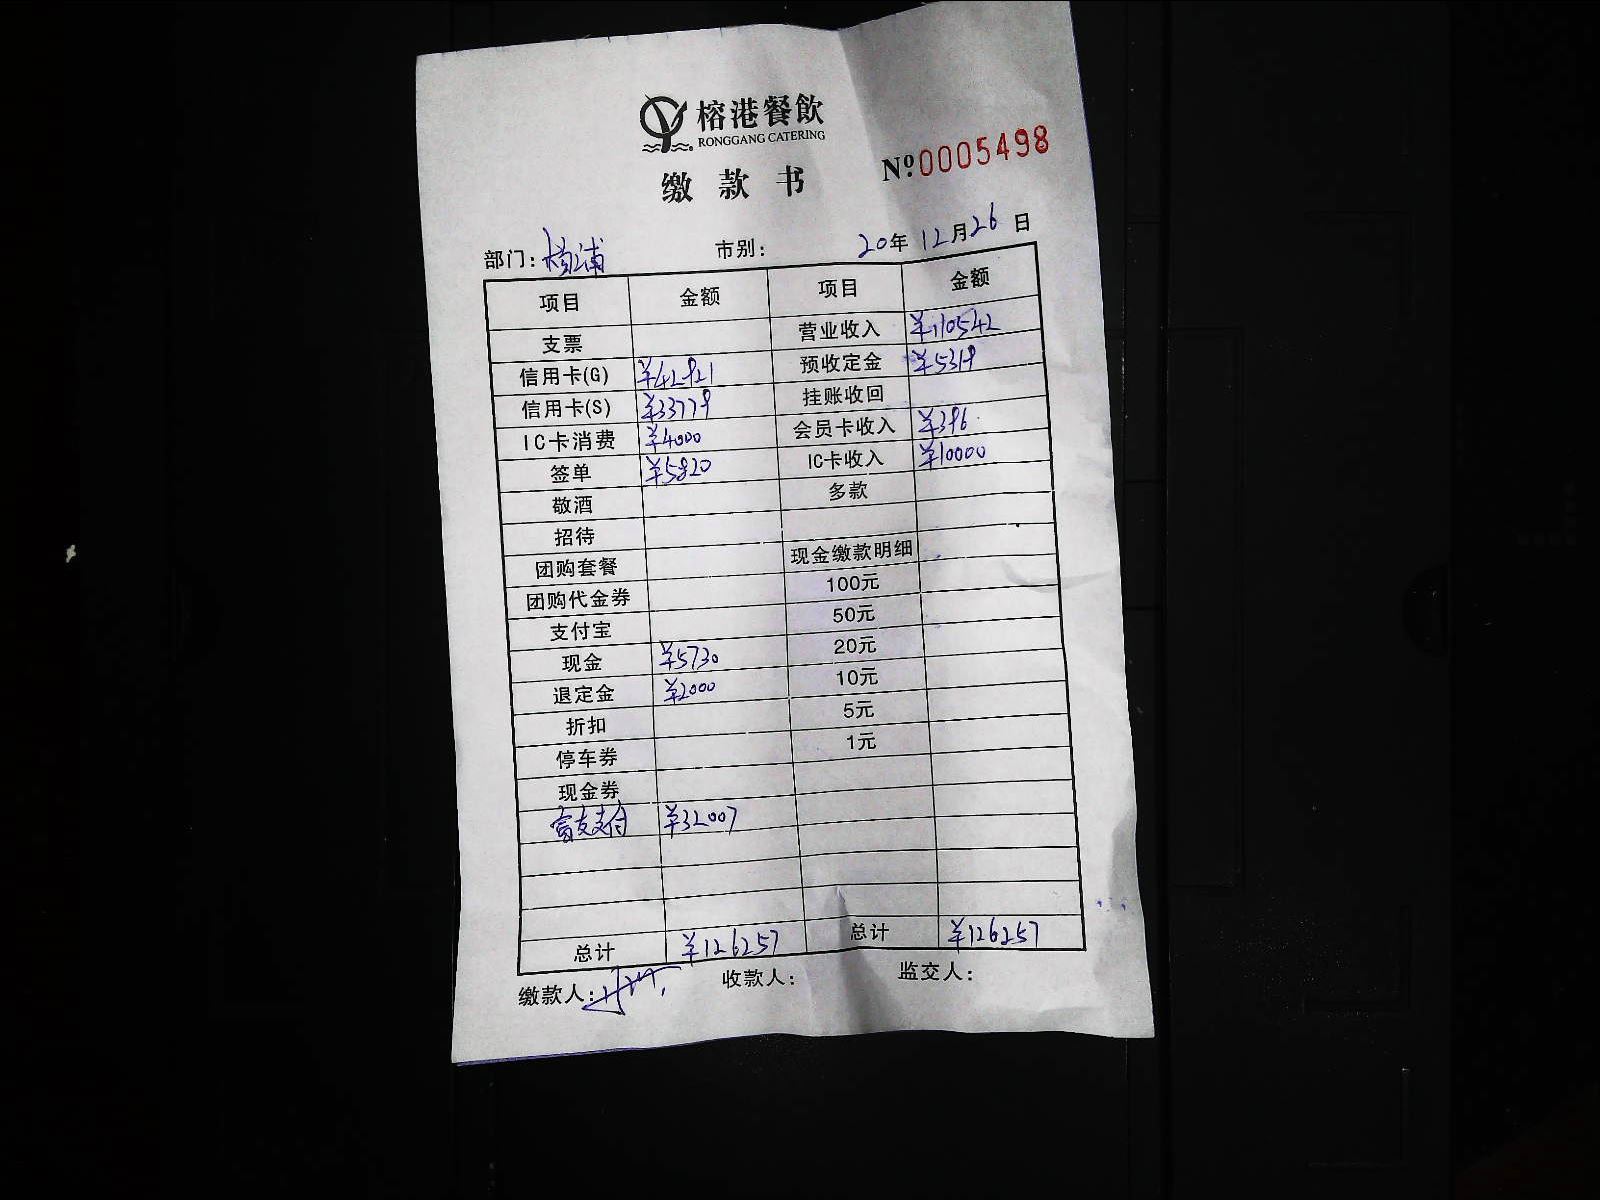 榕港餐飲
RONGGANG CATERING
缴款书
Nº 0005498
部门：杨浦 市别： 20年12月26日
项目 金额 项目 金额
支票 营业收入 ¥110542
信用卡(G) ¥42921 预收定金 ¥5319
信用卡(S) ¥33779 挂账收回
IC卡消费 ¥4000 会员卡收入 ¥396
签单 ¥5820 IC卡收入 ¥10000
敬酒 多款
招待
团购套餐 现金缴款明细
团购代金券 100元
支付宝 50元
现金 ¥5730 20元
退定金 ¥2000 10元
折扣 5元
停车券 1元
现金券
富友支付 ¥32007
总计 ¥126257 总计 ¥126257
缴款人： 收款人： 监交人：